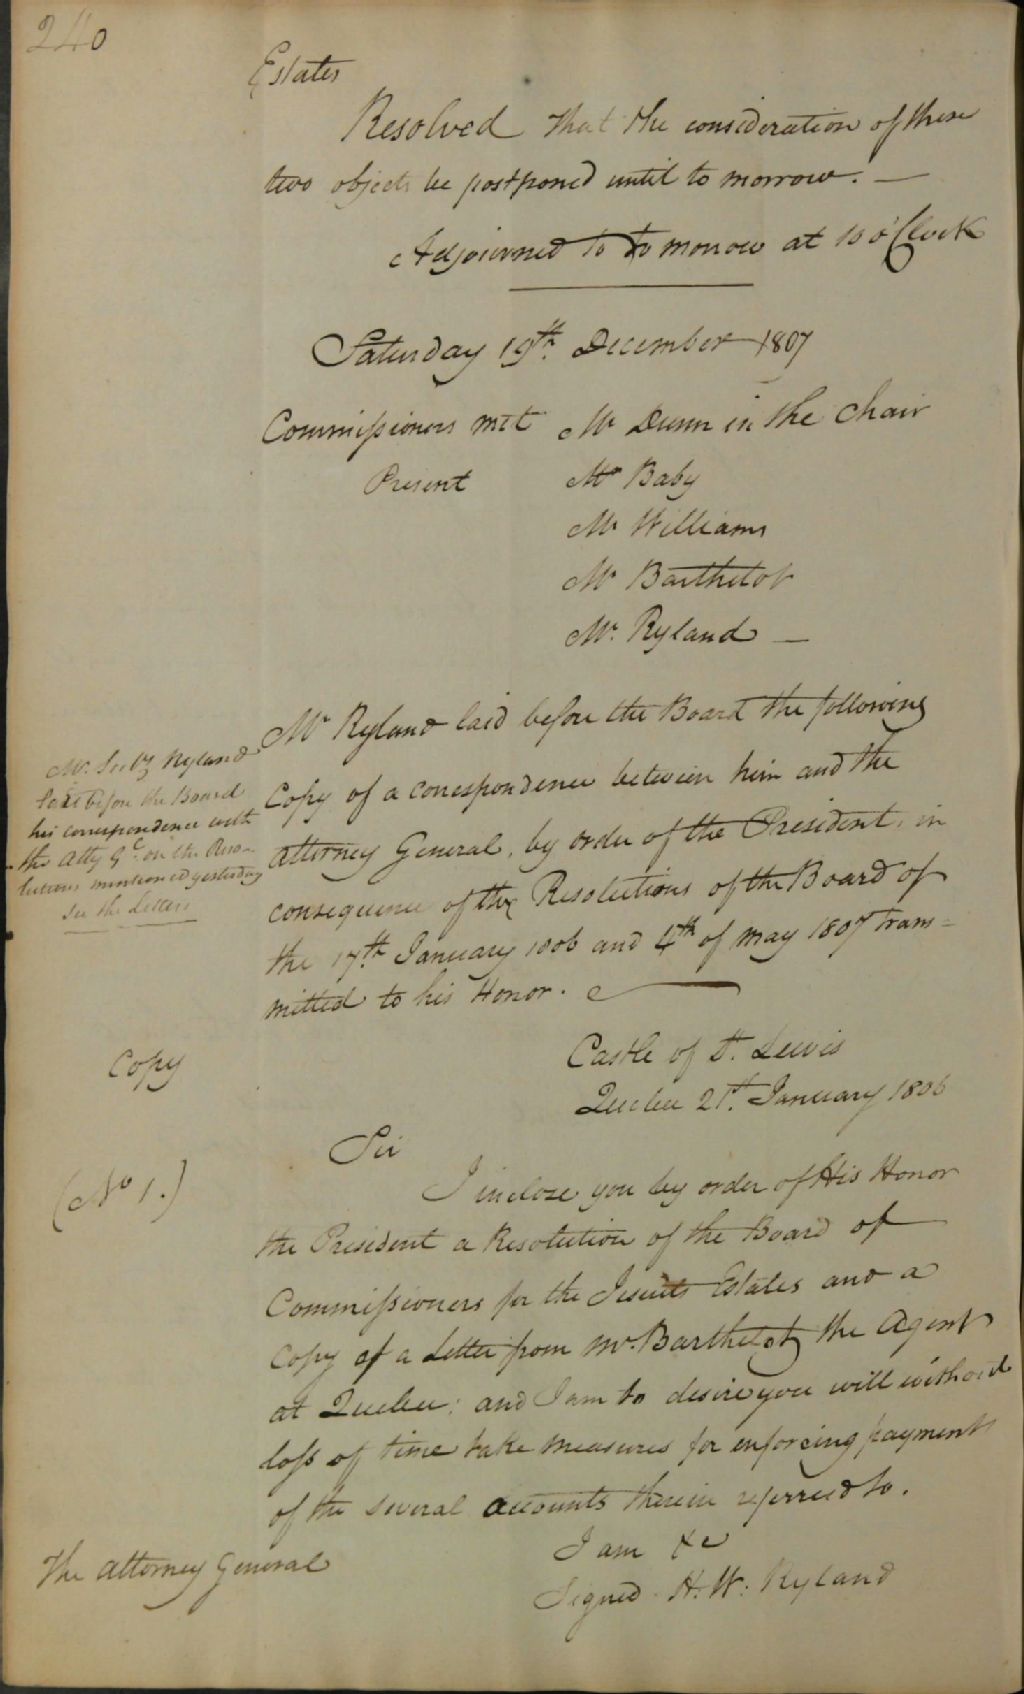 240
Estates
Resolved that the consideration of these
two objects be postponed until to morrow. —
Adjourned to to morrow at 10 o'Clock
Saturday 19th. December 1807
Commissioners met Mr Dunn in the Chair
Present Mr Baby
Mr Williams
Mr Barthelot
Mr. Ryland —
Mr Ryland laid before the Board the following
copy of a correspondence between him and the
attorney General, by order of the President, in
consequence of the Resolutions of the Board of
the 17th. January 1806 and 4th of may 1807 trans=
mitted to his Honor.
Mr. Secry Ryland
laid before the Board
his correspondence with
the Atty Gl. on the Reso-
lutions mentioned yesterday
See the Letters
Castle of St. Lewis
Quebec 21st. January 1806
Copy
(No 1.)
Sir
I inclose you by order of His Honor
the President a Resolution of the Board of
Commissioners for the Jesuits Estates and a
copy of a Letter from Mr. Barthelot the Agent
at Quebec; and I am to desire you will without
loss of time take measures for enforcing payment
of the several accounts therein referred to.
I am &c
Signed. H. W: Ryland
The Attorney General